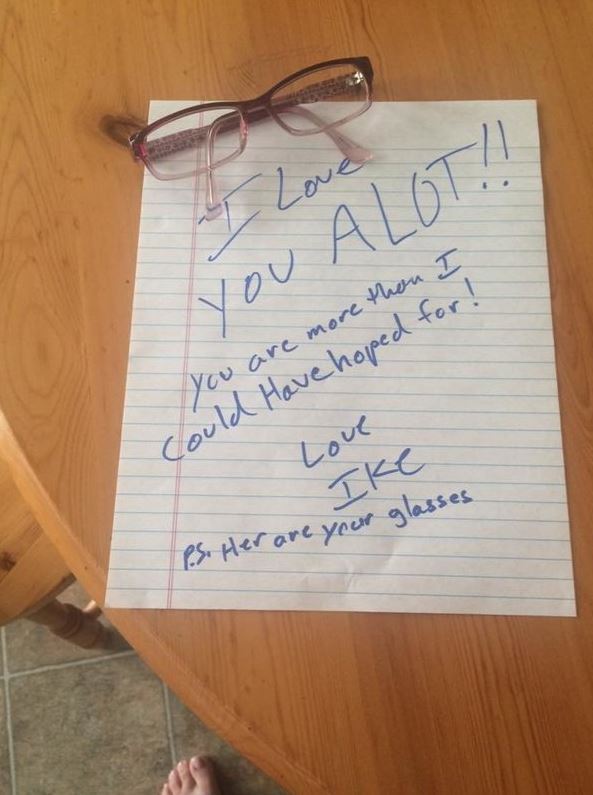 I Love
YOU ALOT!!
You are more than I
Could Have hoped for!
Love
IKE
P.S. Her are your glasses